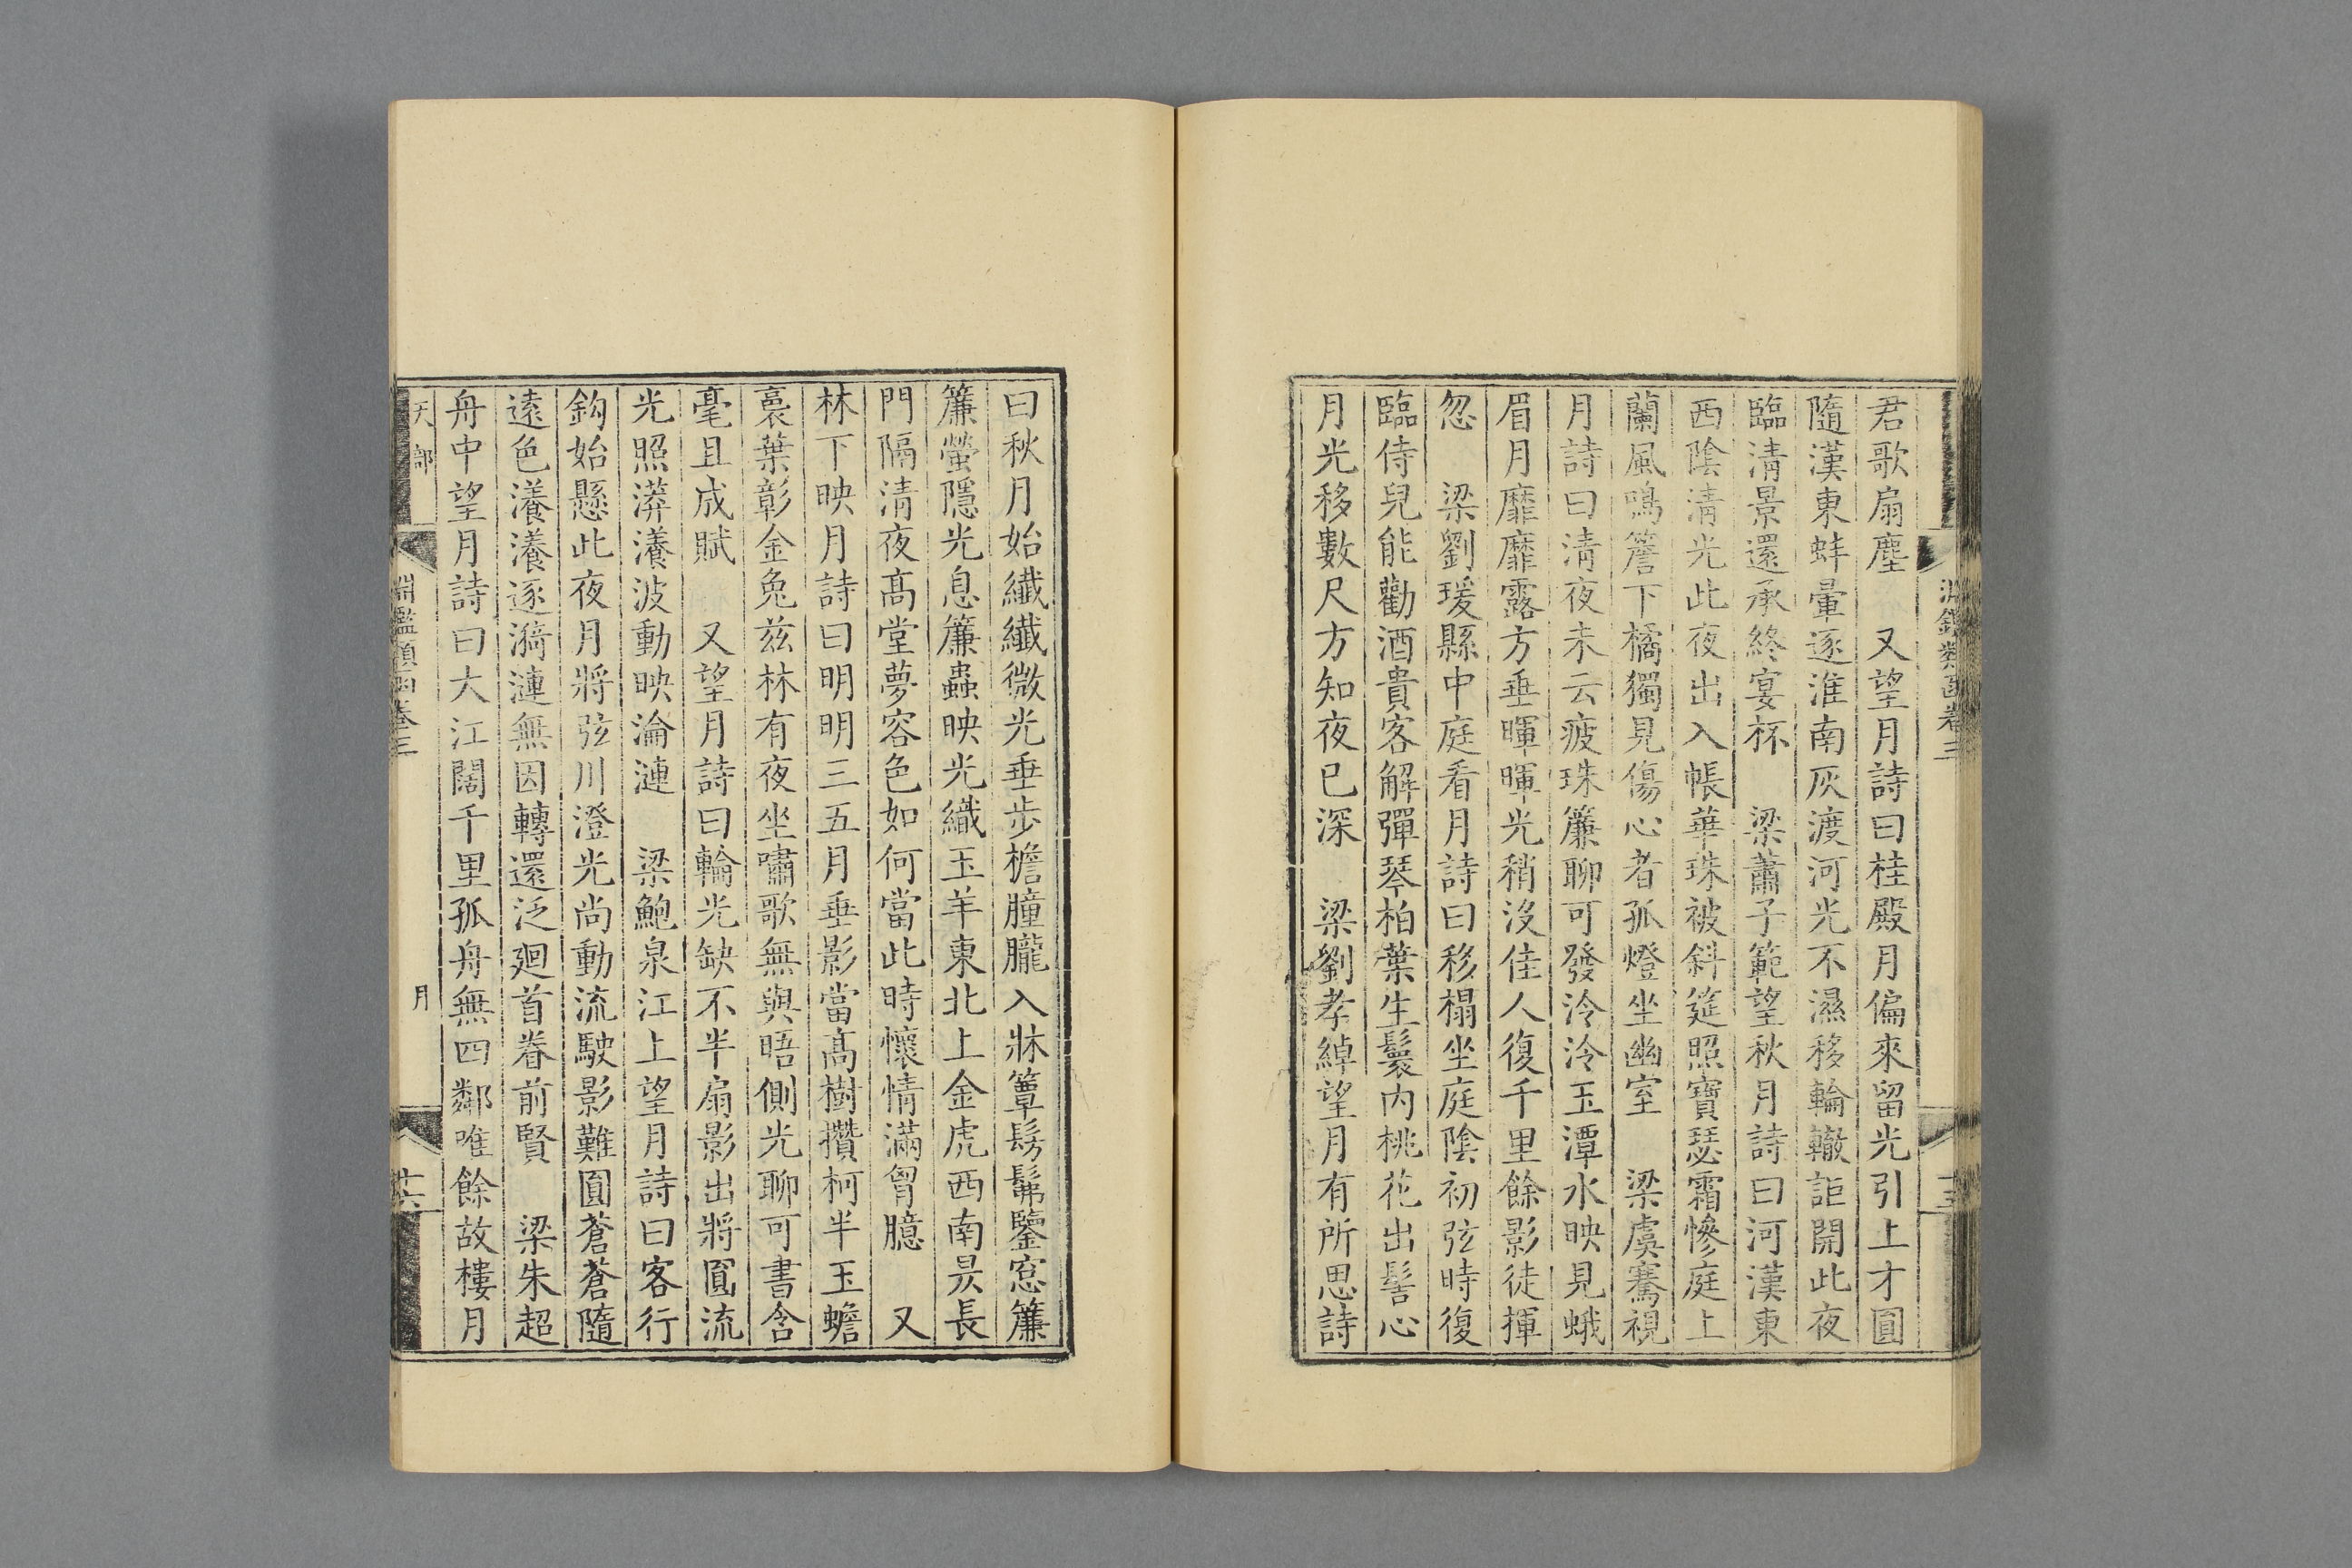 淵鑑類函卷三
君歌扇塵　又望月詩曰桂殿月偏來留光引上才圓
隨漢東蚌暈逐淮南灰渡河光不濕移輪轍詎開此夜
臨清景還承終宴杯　梁蕭子範望秋月詩曰河漢東
西陰清光此夜出入帳華珠被斜筵照寶瑟霜慘庭上
蘭風鳴簷下橘獨見傷心者孤燈坐幽室　梁虞騫視
月詩曰清夜未云疲珠簾聊可發泠泠玉潭水映見蛾
眉月靡靡露方垂暉暉光稍沒佳人復千里餘影徒揮
忽　梁劉瑗縣中庭看月詩曰移榻坐庭陰初弦時復
臨侍兒能勸酒貴客解彈琴柏葉生鬟內桃花出髻心
月光移數尺方知夜已深　梁劉孝綽望月有所思詩
曰秋月始纖纖微光垂步檐朣朧入牀簟髣髴鑒窓簾
簾螢隱光息簾蟲映光織玉羊東北上金虎西南昃長
門隔清夜髙堂夢容色如何當此時懷情滿胷臆　又
林下映月詩曰明明三五月垂影當髙樹攢柯半玉蟾
裛葉彰金兔兹林有夜坐嘯歌無與晤側光聊可書含
毫且成賦　又望月詩曰輪光缺不半扇影出將圓流
光照漭瀁波動映淪漣　梁鮑泉江上望月詩曰客行
鈎始懸此夜月將弦川澄光尚動流駛影難圓蒼蒼隨
遠色瀁瀁逐漪漣無因轉還泛廻首眷前賢　梁朱超
舟中望月詩曰大江闊千里孤舟無四鄰唯餘故樓月
天部
淵鑑類函卷三
月
十六